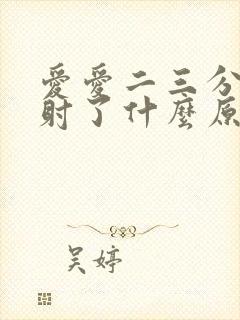 愛愛二三分
射了什麼原
吴婷